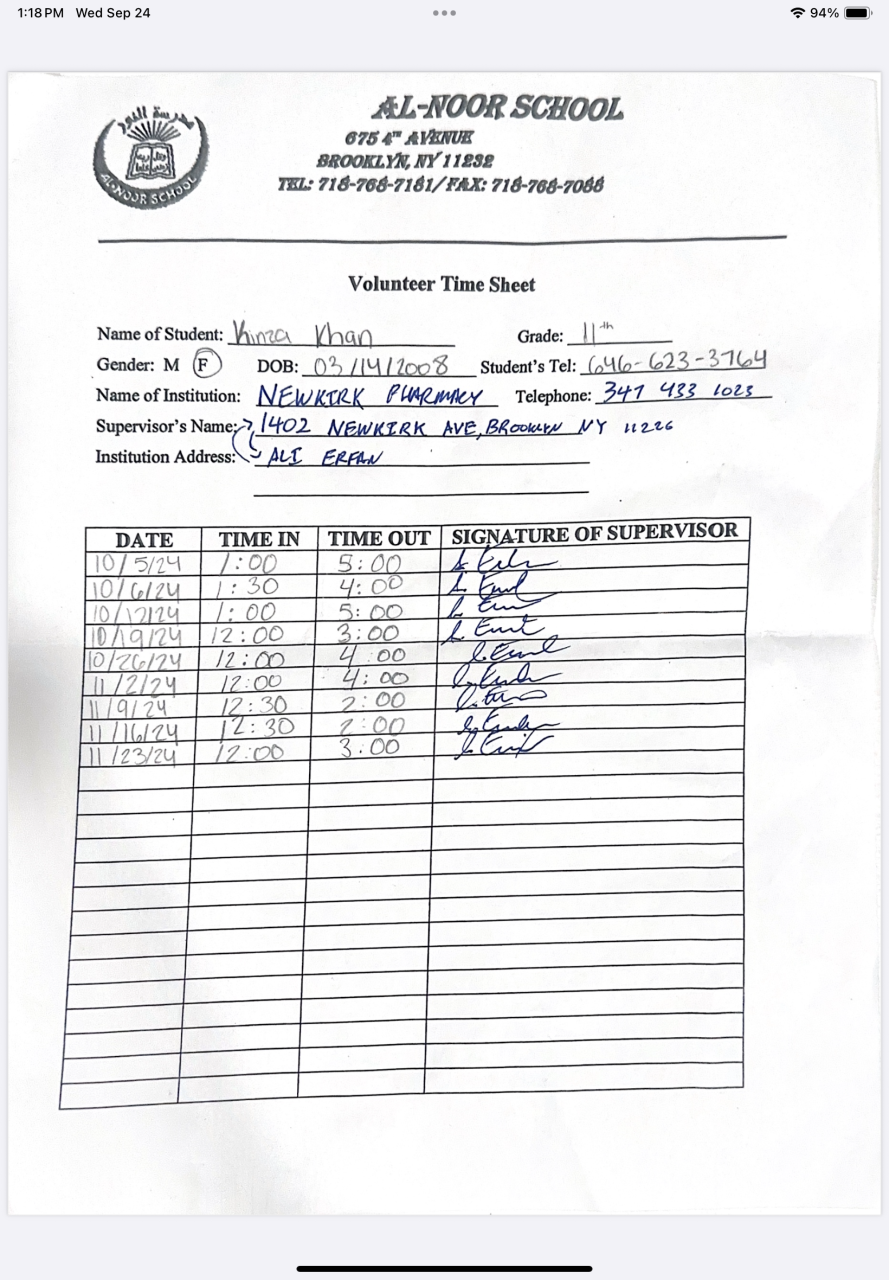 1:18 PM Wed Sep 24
94%
مدرسة النور
AL-NOOR SCHOOL
AL-NOOR SCHOOL
675 4TH AVENUE
BROOKLYN, NY 11232
TEL: 718-768-7181/ FAX: 718-768-7088
Volunteer Time Sheet
Name of Student: Kinza Khan Grade: 11th
Gender: M F DOB: 03/14/2008 Student's Tel: 646-623-3764
Name of Institution: NEWKIRK PHARMACY Telephone: 347 433 1023
Supervisor's Name: 1402 NEWKIRK AVE, BROOKLYN NY 11226
Institution Address: ALI ERFAN
DATE TIME IN TIME OUT SIGNATURE OF SUPERVISOR
10/5/24 1:00 5:00
10/6/24 1:30 4:00
10/12/24 1:00 5:00
10/19/24 12:00 3:00
10/26/24 12:00 4:00
11/2/24 12:00 4:00
11/9/24 12:30 2:00
11/16/24 12:30 2:00
11/23/24 12:00 3:00